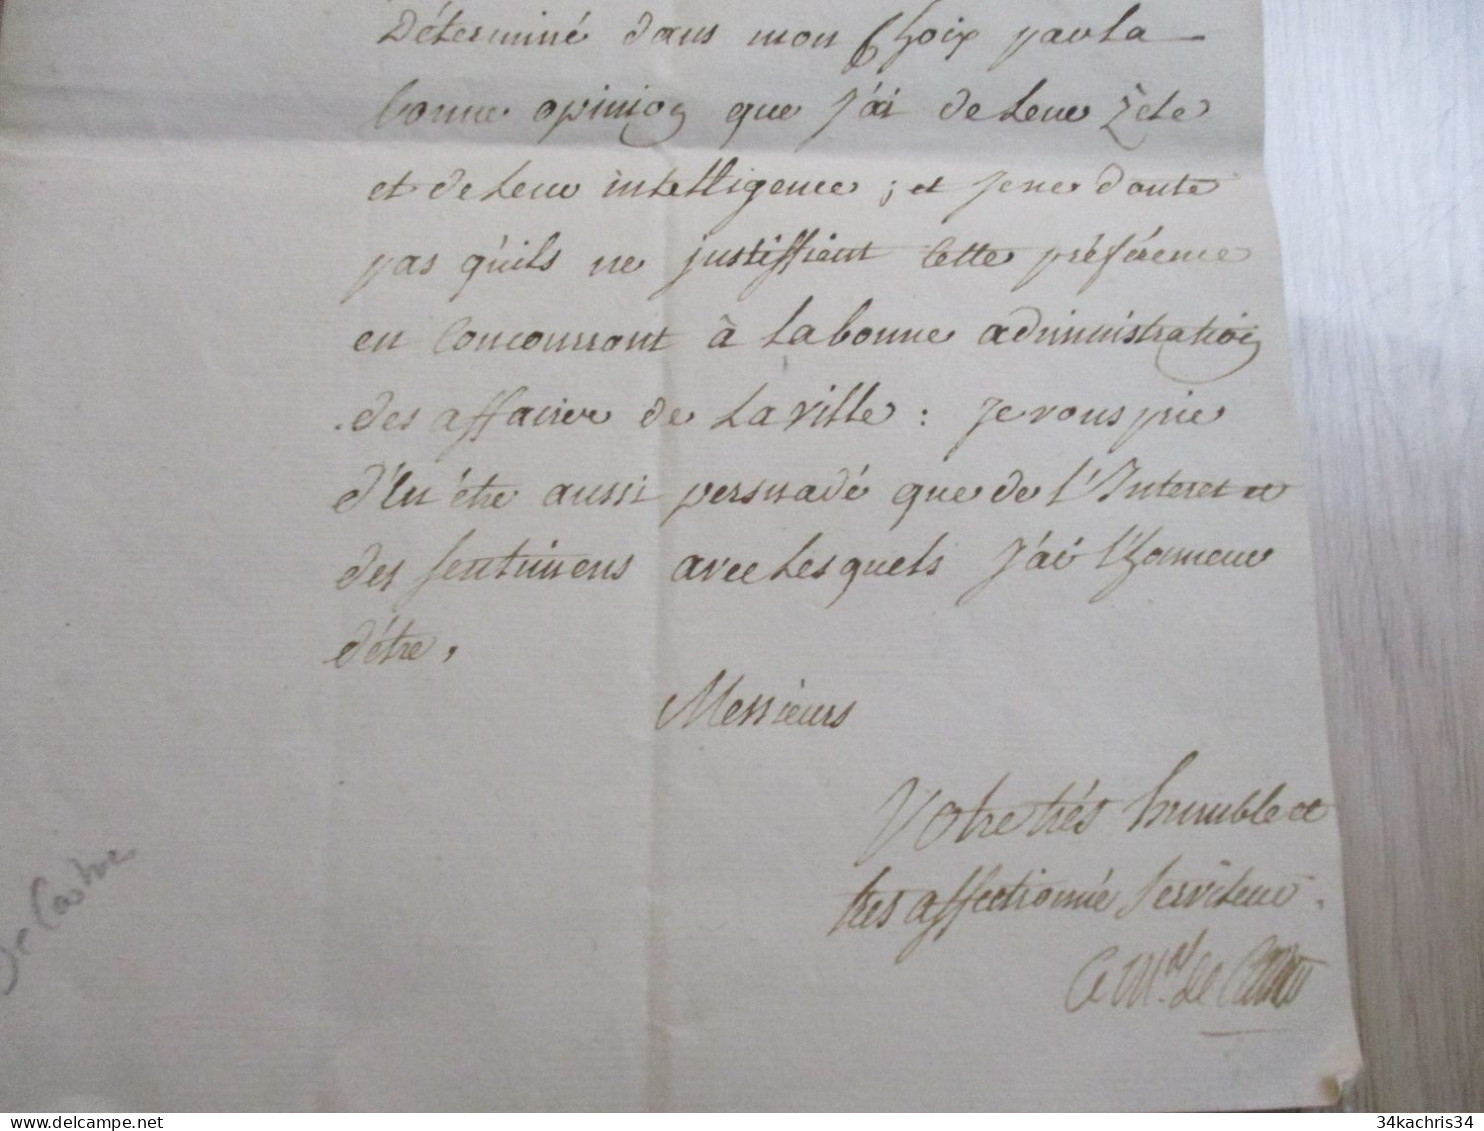 Déterminé dans mon Choix par la
bonne opinion que J'ai de Leur Zele
et de Leur intelligence ; et Je ne doute
pas qu'ils ne justiffient Cette préférence
en Concourrant à La bonne administration
des affaires de La Ville : Je vous prie
d'En être aussi persuadé que de l'Interet et
des sentimens avec Lesquels J'ai l'honneur
d'être,
Messieurs
Votre très humble et
tres affectionné Serviteur.
le Mal de Castries
De Castries
34kachris34
delcampe.net